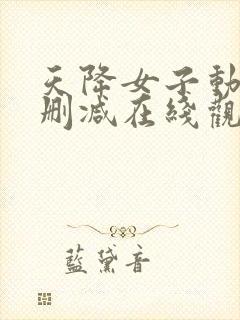 天降女子動
删减在綫觀
藍黛音